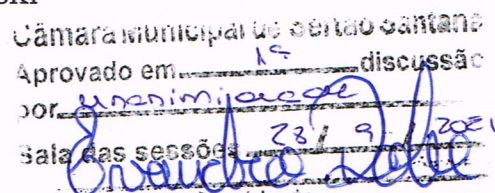 Câmara Municipal de Sertão Santana
Aprovado em 1ª discussão
por unanimidade
Sala das sessões 28 / 9 / 2021